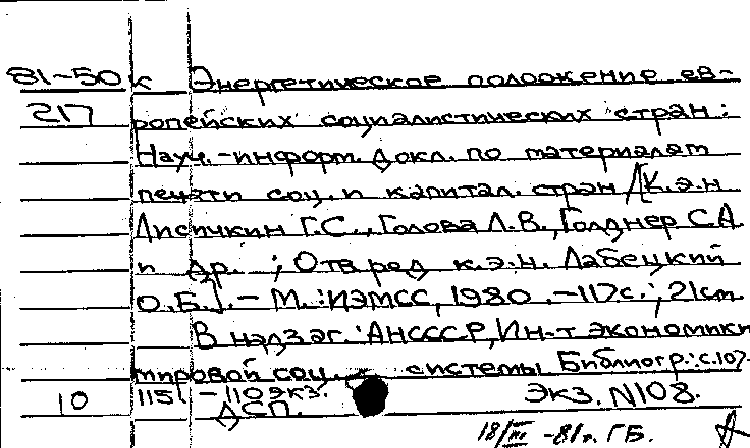 81-50к Энергетическое положение ев-
217 ропейских социалистических стран:
Науч.-информ. докл. по материалам
печати соц. и капитал. стран /[К.э.н
Лисичкин Г.С., Голова Л.В., Голднер С.А.
и др. ; Отв ред к.э.н. Лабецкий
О.Б.]. - М.: ИЭМСС, 1980. - 117с.; 21см
В надзаг.: АНСССР, Ин-т экономики
мировой соц. системы Библиогр.: с.107.
10 115 - 110экз. Экз. N108.
ДСП.
18/III -81г. ГБ.